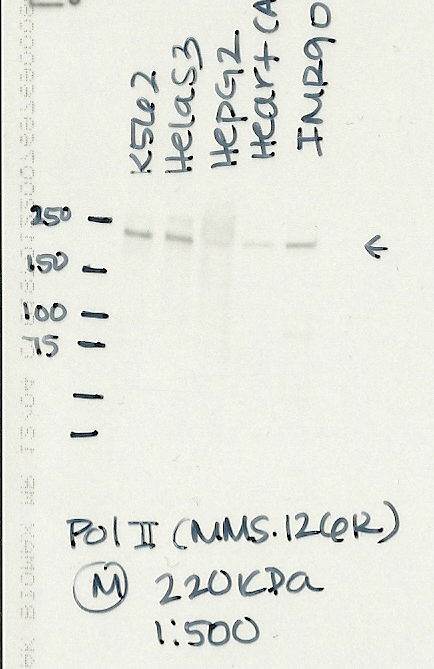 K562
HelaS3
HepG2
Heart CA
IMR90
250
150
100
75
Pol II (MMS.126R)
M 220KDa
1:500